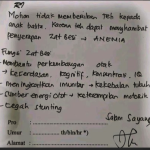 Mohon tidak memberikan Teh kepada
anak balita karena teh dapat menghambat
penyerapan zat besi → ANEMIA
Fungsi zat Besi
- Membantu perkembangan otak
→ kecerdasan, kognitif, konsentrasi, IQ
- meningkatkan imunitas → kekebalan tubuh
- Sumber energi otot → ketrampilan motorik
- cegah stunting
Salam Sayang
Pro :
Umur : (th/bln/hr*)
Alamat :